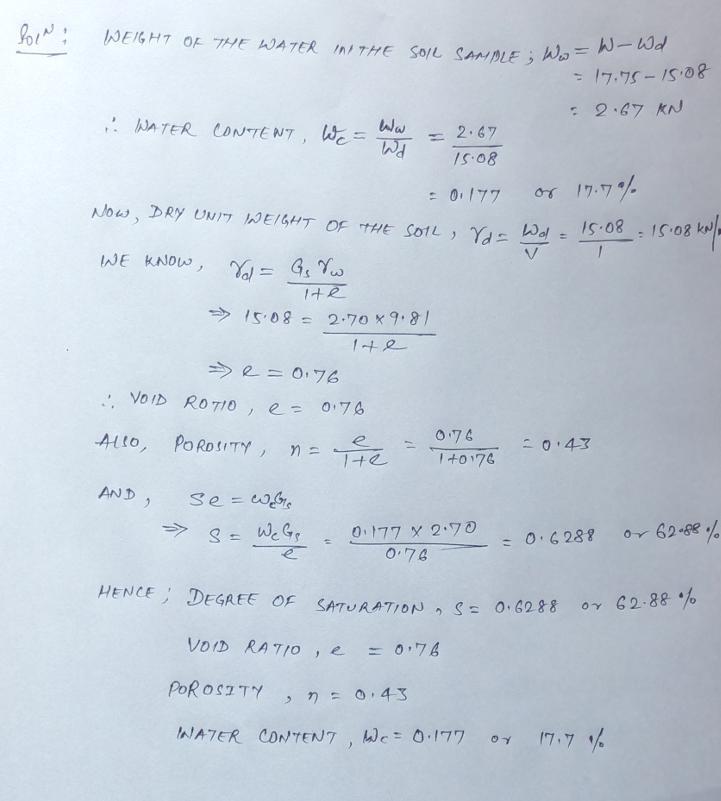 Solⁿ: WEIGHT OF THE WATER IN THE SOIL SAMPLE; Ww = W - Wd
= 17.75 - 15.08
= 2.67 KN
∴ WATER CONTENT, Wc = Ww/Wd = 2.67/15.08
= 0.177 or 17.7%
NOW, DRY UNIT WEIGHT OF THE SOIL, γd = Wd/V = 15.08/1 = 15.08 kN/
WE KNOW, γd = Gs γw/1+e
⇒ 15.08 = 2.70 × 9.81/1+e
⇒ e = 0.76
∴ VOID ROTIO, e = 0.76
ALSO, POROSITY, n = e/1+e = 0.76/1+0.76 = 0.43
AND, Se = WcGs
⇒ S = WcGs/e = 0.177 × 2.70/0.76 = 0.6288 or 62.88%
HENCE; DEGREE OF SATURATION, S = 0.6288 or 62.88%
VOID RATIO, e = 0.76
POROSITY, n = 0.43
WATER CONTENT, Wc = 0.177 or 17.7%